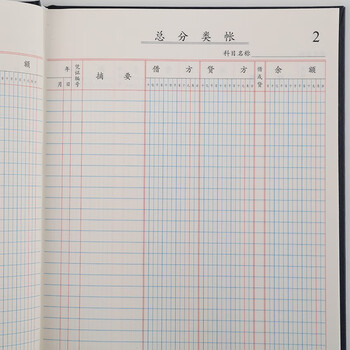 总分类帐
2
科目名称
额
年
凭证编号
摘要
借方
贷方
借或贷
余额
月
日